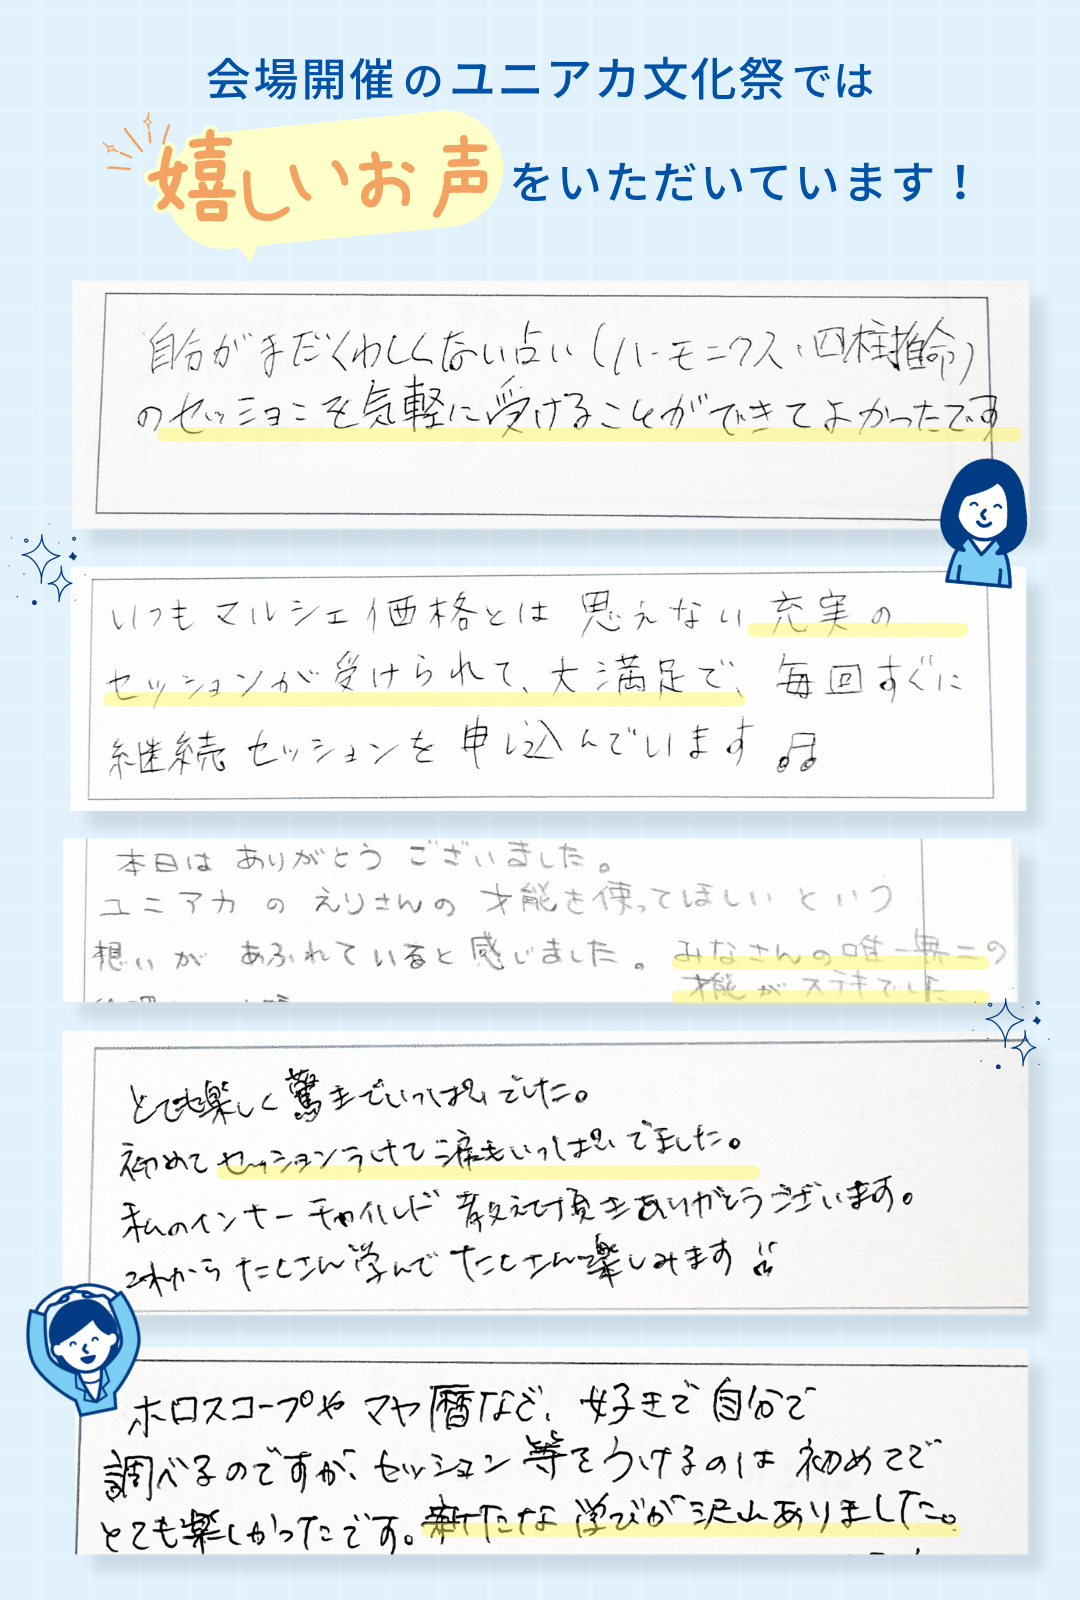 会場開催のユニアカ文化祭では
嬉しいお声をいただいています！
自分がまだくわしくない占い（ハーモニクス・四柱推命）
のセッションを気軽に受けることができてよかったです
いつもマルシェ価格とは思えない充実の
セッションが受けられて、大満足で、毎回すぐに
継続セッションを申し込んでいます♫
本日はありがとうございました。
ユニアカのえりさんの才能を使ってほしいという
想いがあふれていると感じました。みなさんの唯一無二の
才能がステキでした
とても楽しく驚きでいっぱいでした。
初めてセッションうけて涙もいっぱいでました。
私のインナーチャイルド教えて頂きありがとうございます。
これからたくさん学んでたくさん楽しみます
ホロスコープやマヤ暦など、好きで自分で
調べるのですが、セッション等をうけるのは初めてで
とても楽しかったです。新たな学びが沢山ありました。